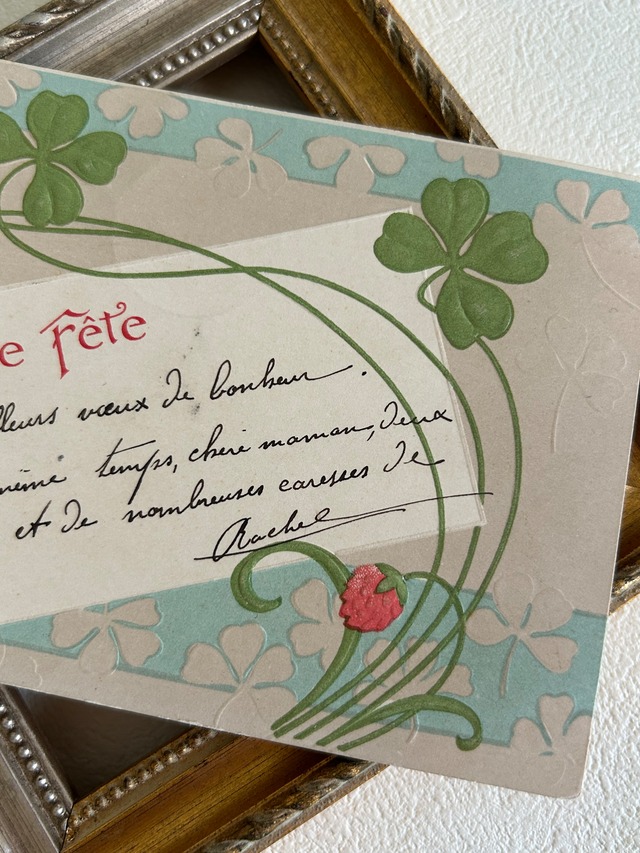 e Fête
lleurs vœux de bonheur.
même temps, chère maman, deux
et de nombreuses caresses de
Rachel